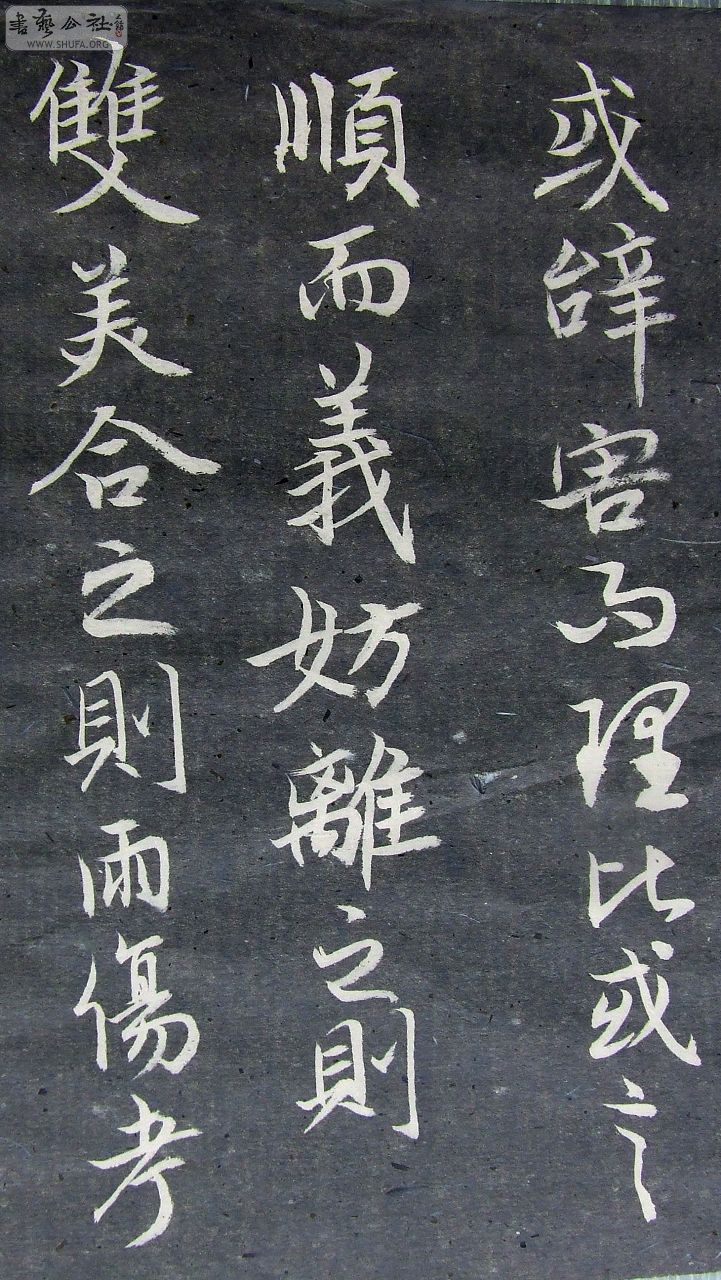 或辝害而理比或言
順而義妨離之則
雙美合之則兩傷考
書藝公社
WWW.SHUFA.ORG